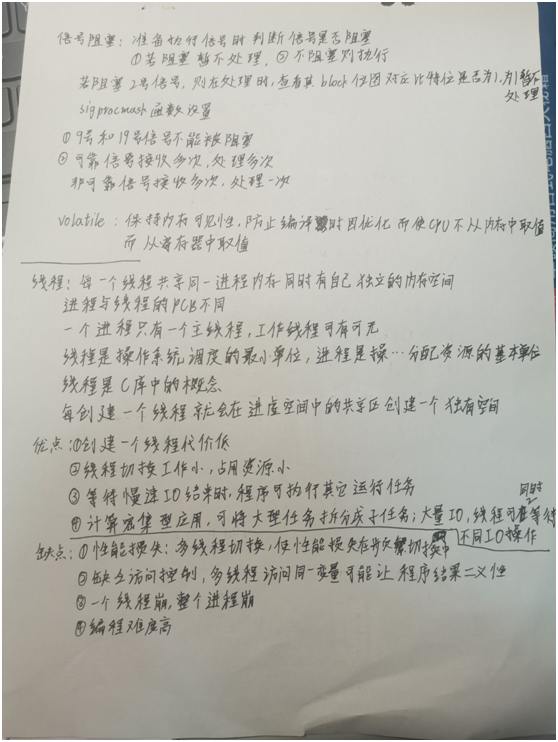 信号阻塞：准备执行信号时判断信号是否阻塞
①若阻塞暂不处理，②不阻塞则执行
若阻塞2号信号，则在处理时，查看其block位图对应比特位是否为1，为1暂不处理
sigprocmask函数设置
①9号和19号信号不能被阻塞
②可靠信号接收多次，处理多次
非可靠信号接收多次，处理一次
volatile：保持内存可见性，防止编译时因优化而使CPU不从内存中取值
而从寄存器中取值
线程：每一个线程共享同一进程内存同时有自己独立的内存空间
进程与线程的PCB不同
一个进程只有一个主线程，工作线程可有可无
线程是操作系统调度的最小单位，进程是操…分配资源的基本单位
线程是C库中的概念
每创建一个线程就会在进虚空间中的共享区创建一个独有空间
优点：①创建一个线程代价低
②线程切换工作小，占用资源小
③等待慢速IO结果时，程序可执行其它运行任务
④计算密集型应用，可将大型任务拆分成子任务；大量IO，线程可同时等待
不同IO操作
缺点：①性能损失：多线程切换，使性能损失在频繁切换中
②缺乏访问控制，多线程访问同一变量可能让程序结果二义性
③一个线程崩，整个进程崩
④编程难度高